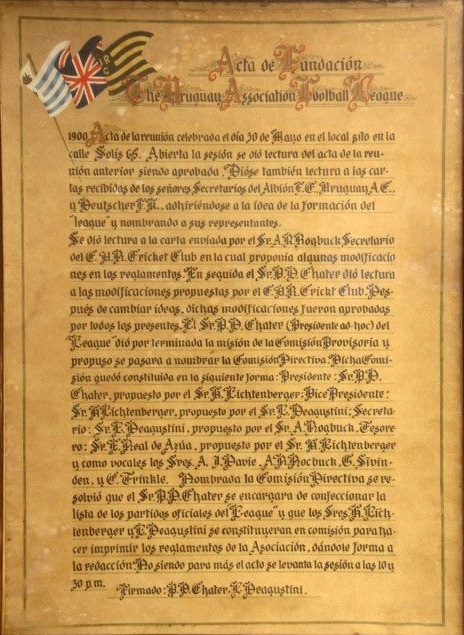 Acta de Fundación
The Uruguay Association Football League
1900 Acta de la reunión celebrada el día 30 de Mayo en el local sito en la
calle Solís 65. Abierta la sesión se dió lectura del acta de la reu-
nión anterior siendo aprobada. Dióse también lectura a las car-
tas recibidas de los señores Secretarios del Albión F.C, Uruguay A.C,
y Deutscher F.K., adhiriéndose a la idea de la formación del
"league" y nombrando a sus representantes.
Se dió lectura a la carta enviada por el Sr. A.R. Rogbuck Secretario
del C.U.R. Cricket Club en la cual proponía algunas modificacio
nes en los reglamentos. En seguida el Sr. P.D. Chater dió lectura
a las modificaciones propuestas por el C.U.R. Crickt Club. Des-
pués de cambiar ideas, dichas modificaciones fueron aprobadas
por todos los presentes. El Sr. P.D. Chater (Presidente ad-hoc) del
League dió por terminada la misión de la Comisión Provisoria y
propuso se pasara a nombrar la Comisión Directiva. Dicha Comi-
sión quedó constituída en la siguiente forma: Presidente: Sr. P.D.
Chater, propuesto por el Sr. H. Lichtenberger; Vice Presidente:
Sr. H. Lichtenberger, propuesto por el Sr. E. Deagustini; Secreta-
rio: Sr. E. Deagustini, propuesto por el Sr. A. Rogbuck, Tesore-
ro: Sr. E. Real de Azúa, propuesto por el Sr. H. Lichtenberger
y como vocales los Sres. A. J. Davie, A.R. Rocbuck, C. Sivin-
den, y C. Trinkle. Nombrada la Comisión Directiva se re-
solvió que el Sr. P.D. Chater se encargara de confeccionar la
lista de los partidos oficiales del "League" y que los Sres. H. Lich-
tenberger y E. Deagustini se constituyeran en comisión para ha-
cer imprimir los reglamentos de la Asociación, dándole forma a
la redacción. No siendo para más el acto se levanta la sesión a las 10 y
30 p.m.
Firmado: P.D. Chater, E. Deagustini.